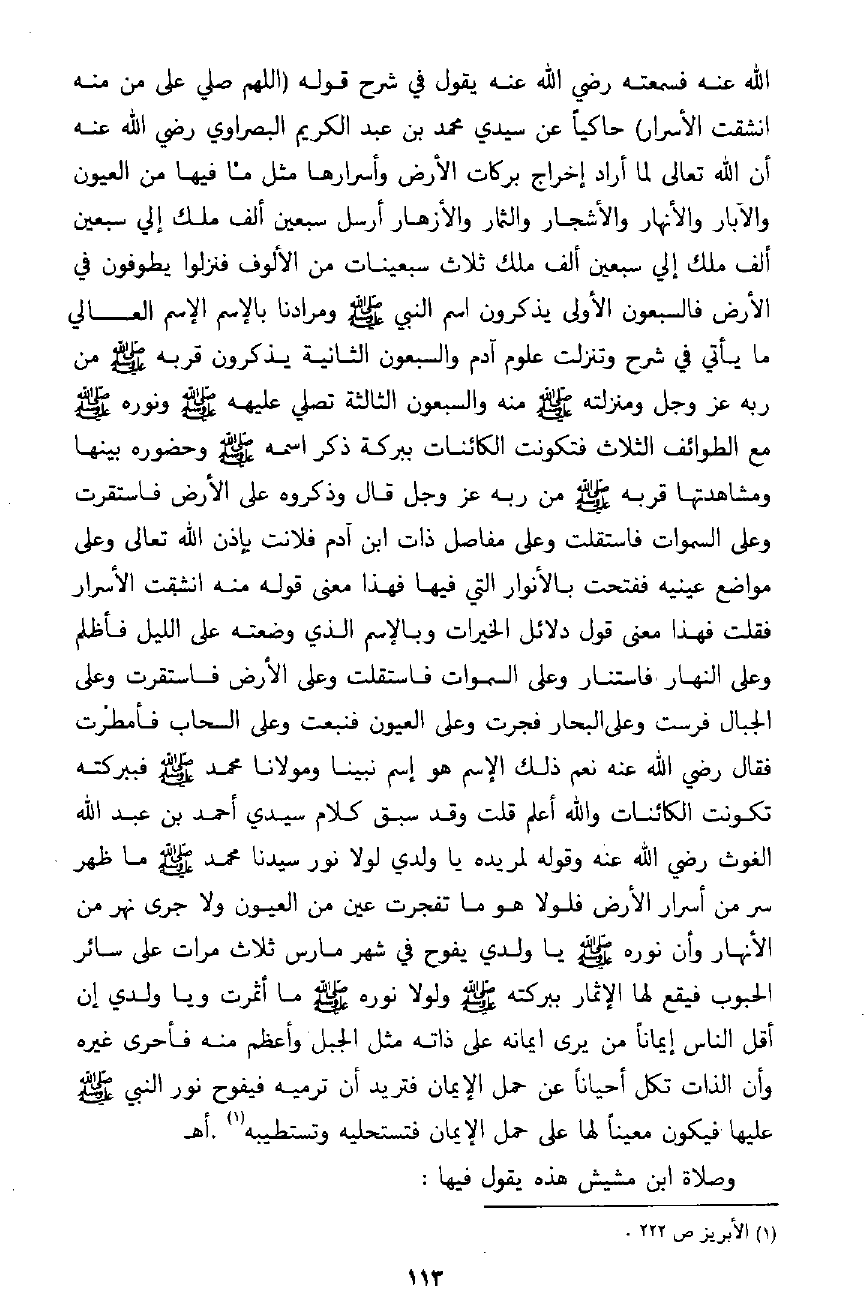 الله عنه فسمعته رضي الله عنه يقول في شرح قوله (اللهم صلي على من منه
انشقت الأسرار) حاكياً عن سيدي محمد بن عبد الكريم البصراوي رضي الله عنه
أن الله تعالى لما أراد إخراج بركات الأرض وأسرارها مثل ما فيها من العيون
والآبار والأنهار والأشجار والثمار والأزهار أرسل سبعين ألف ملك إلي سبعين
ألف ملك إلي سبعين ألف ملك ثلاث سبعينات من الألوف فنزلوا يطوفون في
الأرض فالسبعون الأولى يذكرون اسم النبي ﷺ ومرادنا بالإسم الإسم العالي
ما يأتي في شرح وتنزلت علوم آدم والسبعون الثانية يذكرون قربه ﷺ من
ربه عز وجل ومنزلته ﷺ منه والسبعون الثالثة تصلي عليه ﷺ ونوره ﷺ
مع الطوائف الثلاث فتكونت الكائنات ببركة ذكر اسمه ﷺ وحضوره بينها
ومشاهدتها قربه ﷺ من ربه عز وجل قال وذكروه على الأرض فاستقرت
وعلى السموات فاستقلت وعلى مفاصل ذات ابن آدم فلانت بإذن الله تعالى وعلى
مواضع عينيه ففتحت بالأنوار التي فيها فهذا معنى قوله منه انشقت الأسرار
فقلت فهذا معنى قول دلائل الخيرات وبالإسم الذي وضعته على الليل فأظلم
وعلى النهار فاستنار وعلى السموات فاستقلت وعلى الأرض فاستقرت وعلى
الجبال فرست وعلى البحار فجرت وعلى العيون فنبعت وعلى السحاب فأمطرت
فقال رضي الله عنه نعم ذلك الإسم هو إسم نبينا ومولانا محمد ﷺ فببركته
تكونت الكائنات والله أعلم قلت وقد سبق كلام سيدي أحمد بن عبد الله
الغوث رضي الله عنه وقوله لمريده يا ولدي لولا نور سيدنا محمد ﷺ ما ظهر
سر من أسرار الأرض فلولا هو ما تفجرت عين من العيون ولا جرى نهر من
الأنهار وأن نوره ﷺ يا ولدي يفوح في شهر مارس ثلاث مرات على سائر
الحبوب فيقع لها الإثمار ببركته ﷺ ولولا نوره ﷺ ما أثمرت ويا ولدي إن
أقل الناس إيماناً من يرى ايمانه على ذاته مثل الجبل وأعظم منه فأحرى غيره
وأن الذات تكل أحياناً عن حمل الإيمان فتريد أن ترميه فيفوح نور النبي ﷺ
عليها فيكون معيناً لها على حمل الإيمان فتستحليه وتستطيبه(١) .أهـ
وصلاة ابن مشيش هذه يقول فيها :
(١) الأبريز ص ٢٢٢ .
١١٣